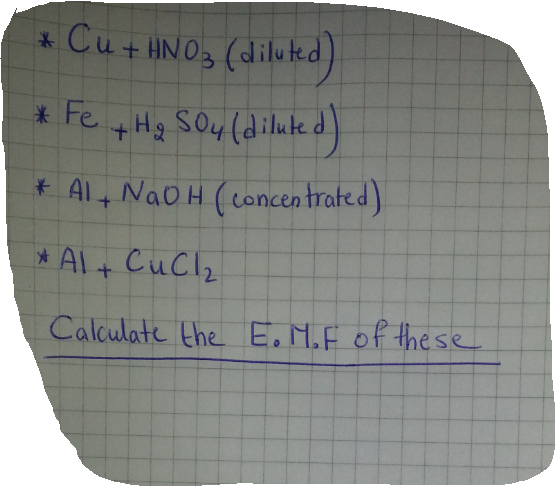 * Cu + HNO3 (diluted)
* Fe + H2 SO4 (diluted)
* Al + NaOH (concentrated)
* Al + CuCl2
Calculate the E.M.F of these